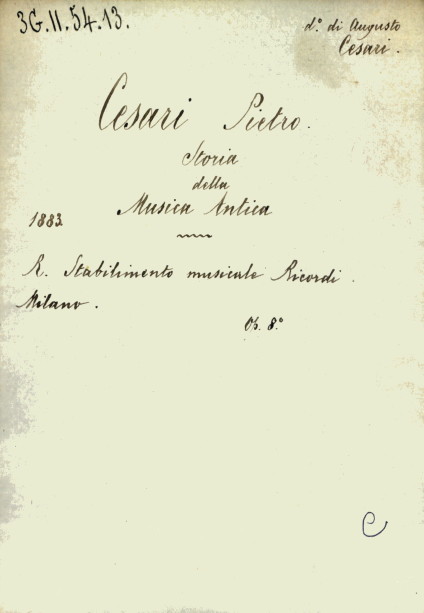 3G.II.54.13.
d.° di Augusto
Cesari.
Cesari Pietro.
Storia
della
Musica Antica
1883.
R. Stabilimento musicale Ricordi.
Milano.
8.°
C